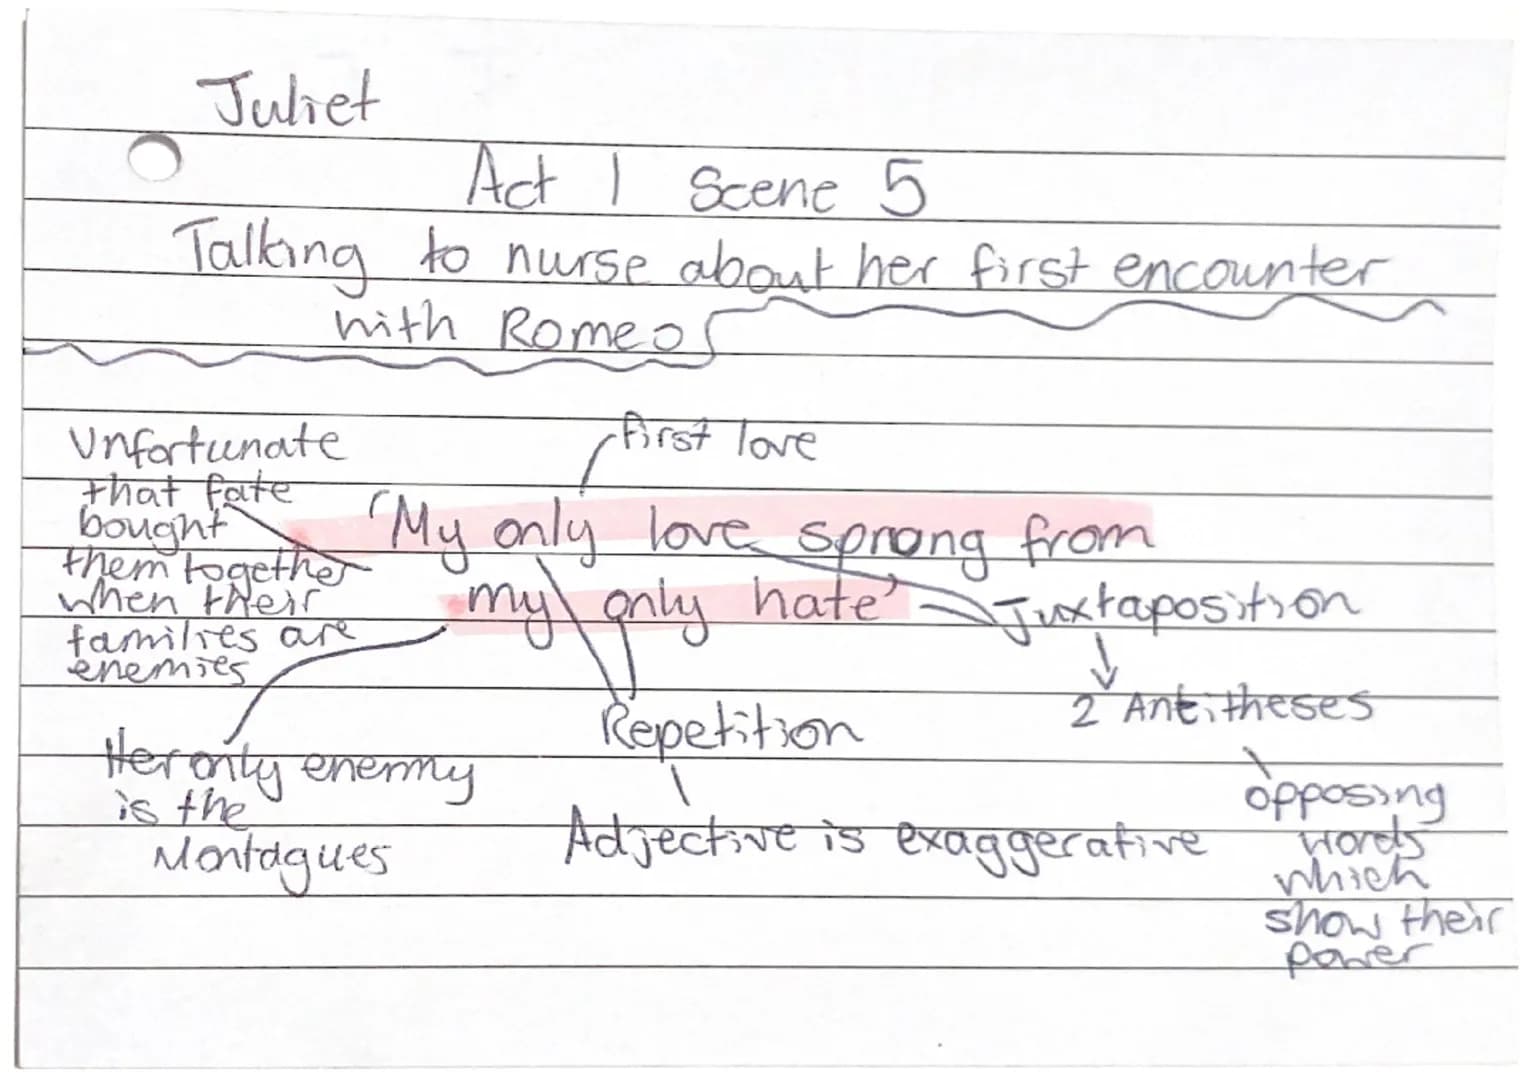 Juliet
Act 1 Scene 5
Talking to nurse about her first encounter
with Romeo
Unfortunate
that fate
bought
them together
when their
families are
enemies
first love
'My only love sprong from
my only hate'
Juxtaposition
2 Antitheses
opposing
words
which
show their
power
Repetition
Adjective is exaggerative
Her only enemy
is the
Montagues